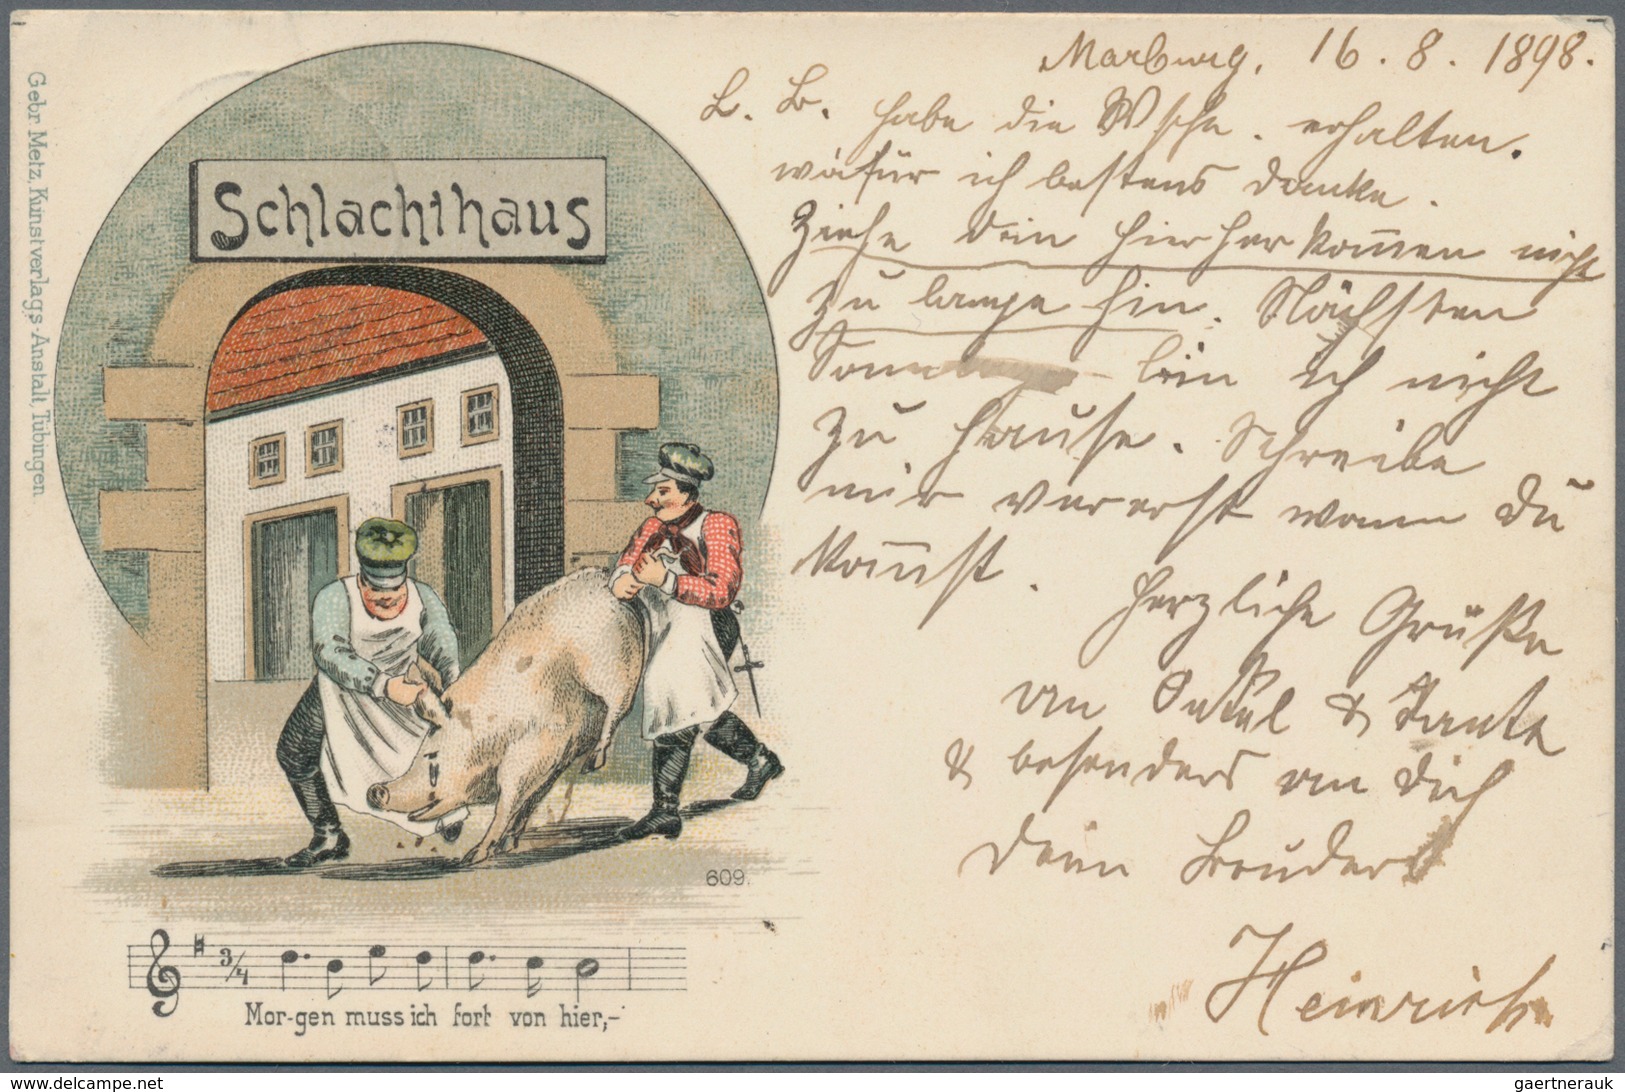 Gebr Metz, Kunstverlags-Anstalt, Tübingen
Schlachthaus
609.
3/4
Mor-gen muss ich fort von hier,-
Marburg, 16. 8. 1898.
L. B. habe die Wsche. erhalten.
wofür ich bestens danke.
Ziehe dein hierher kom̅en nicht
zu lange hin. Nächsten
Sonntag bin ich nicht
zu Hause. Schreibe
mir vorerst wann du
kom̅st.
Herzliche Grüße
an Onkel & Tante
& besonders an Dich
Dein Bruder
Heinrich.
www.delcampe.net
gaertnerauk